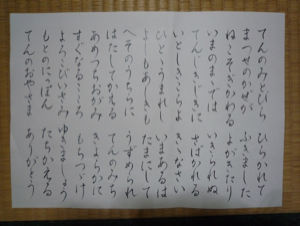 てんのみとびら ひらかれて
まつかぜのかぜが ふきました
ねこそぎかわる よがきたり
いまのままでは いきられぬ
てんじきじきに さばかれる
いとしきこらよ きなさい
ひとうまれし いまあるは
よしもあしきも たまにして
へそのうちらに うずめられ
はたしてかえる てんのみち
あめつちおがみ きよらかに
すぐなるこころ もちつづけ
よろこびいさみ ゆきましょう
もとのにっぽん たちかえる
てんのおやさま ありがとう